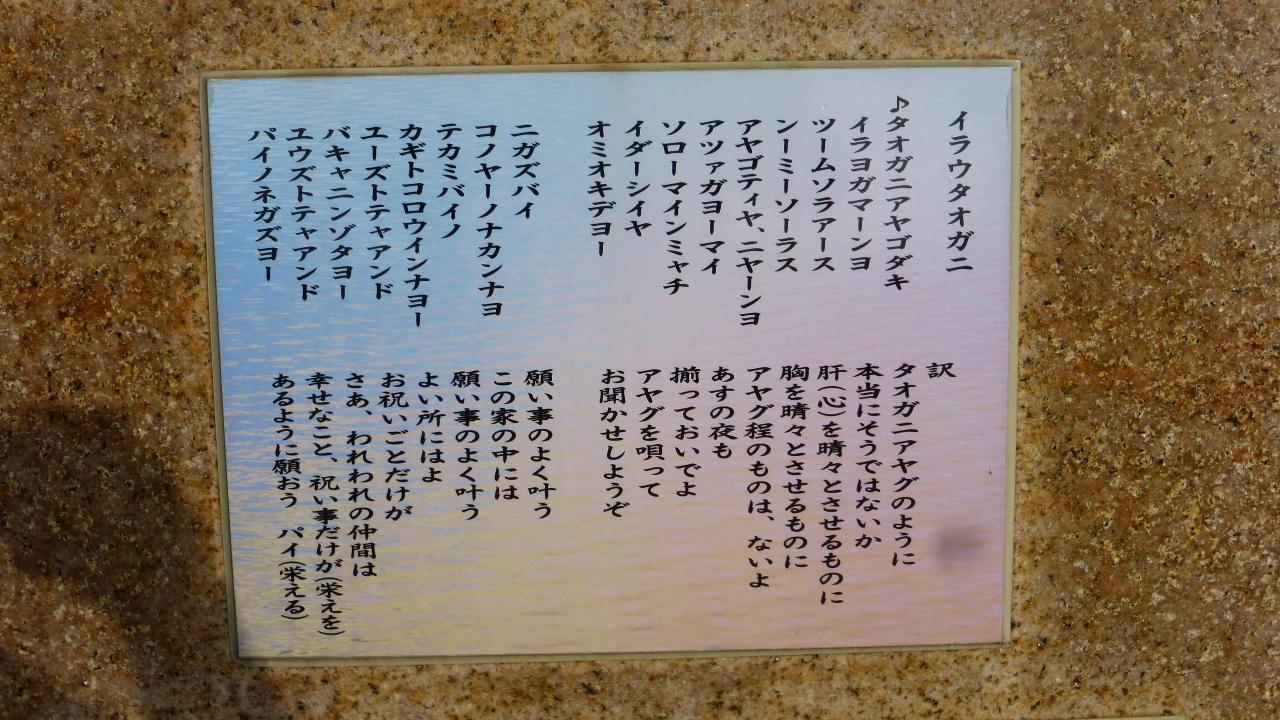 イラウタオガニ
♪タオガニアヤゴダキ
イラヨガマーンヨ
ツームソラアース
ンーミーソーラス
アヤゴティヤ、ニヤーンヨ
アツァガヨーマイ
ソローマインミャチ
イダーシイヤ
オミオキデヨー
ニガズバイ
コノヤーノナカンナヨ
テカミバイノ
カギトコロウインナヨー
ユーズトテャアンド
バキャニンゾタヨー
ユウズトテャアンド
パイノネガズヨー
訳
タオガニアヤグのように
本当にそうではないか
肝(心)を晴々とさせるものに
胸を晴々とさせるものに
アヤグ程のものは、ないよ
あすの夜も
揃っておいでよ
アヤグを唄って
お聞かせしようぞ
願い事のよく叶う
この家の中には
願い事のよく叶う
よい所にはよ
お祝いごとだけが
さあ、われわれの仲間は
幸せなこと、祝い事だけが(栄えを)
あるように願おう　パイ(栄える)